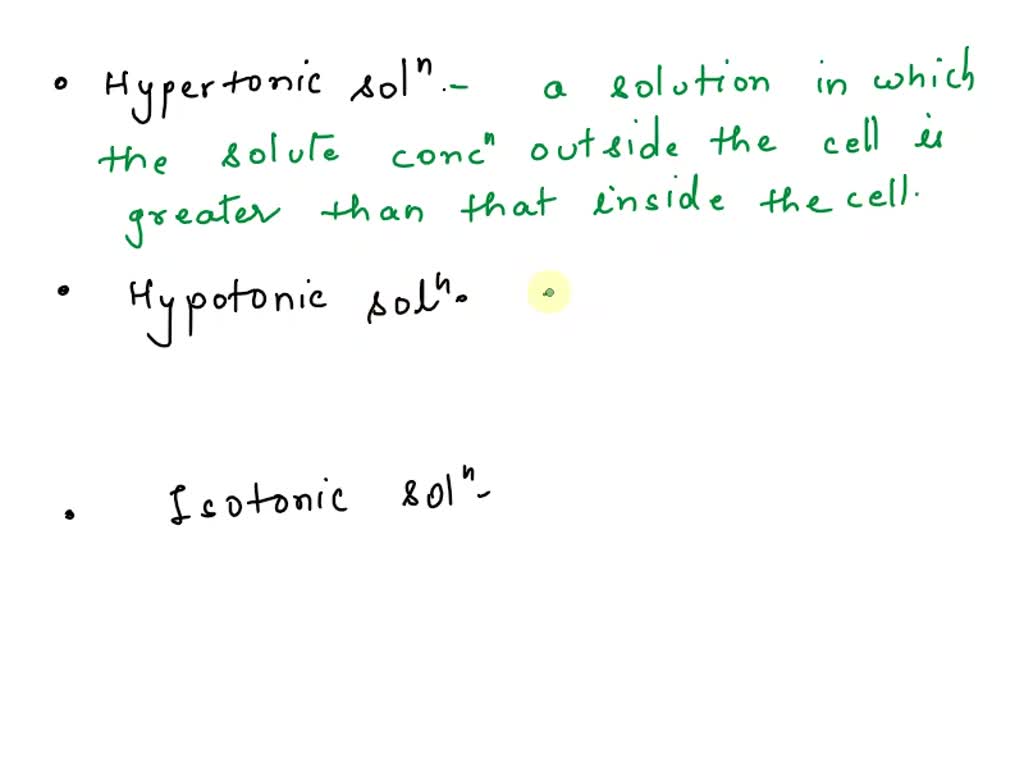 • Hypertonic solⁿ.- a solution in which
the solute concⁿ outside the cell is
greater than that inside the cell.
• Hypotonic solⁿ.
• Isotonic solⁿ-